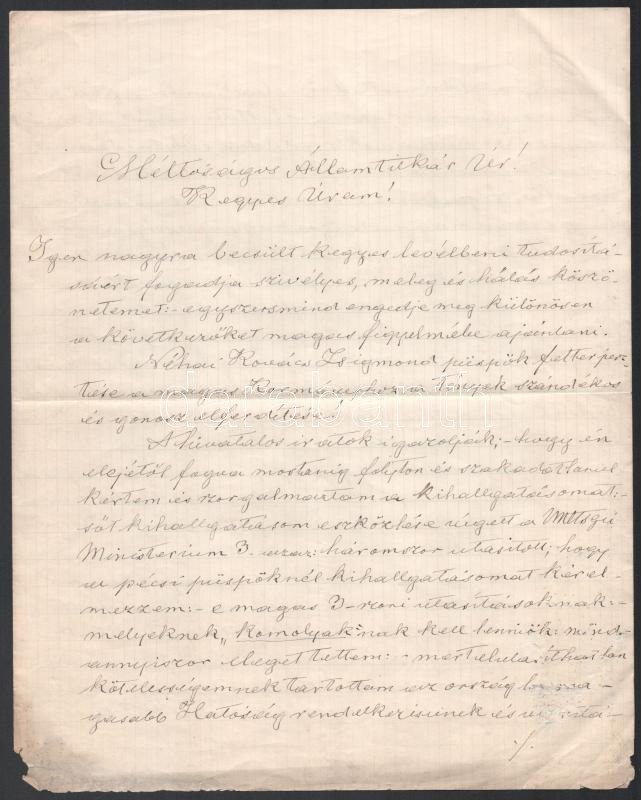 Méltóságos Államtitkár Úr!
Kegyes Uram!
Igen nagyra becsült kegyes levélbeni tudositá-
sáért fogadja szivélyes, meleg és hálás köszö-
netemet:- egyszersmind engedje meg különösen
a következőket magas figyelmébe ajánlani.
Néhai Kovács Zsigmond püspök felterjesz-
tése a magas Kormányhoz a tények szándékos
és gonosz elferdítése!
A hivatalos iratok igazolják;- hogy én
elejétől fogva mostanig folyton és szakadatlanul
kértem és szorgalmaztam a kihallgatásomat;
sőt kihallgatásom eszközlése végett a
Ministerium 3- azaz: háromszor utasitott; hogy
a pécsi püspöknél kihallgatásomat kérel-
mezzem:- e magas 3-szori utasitásoknak:-
melyeknek „komolyak"nak kell lenniök: mind-
annyiszor eleget tettem:- mert elutasithatlan
kötelességemnek tartottam az ország
Hatóság rendelkezésének és
/.